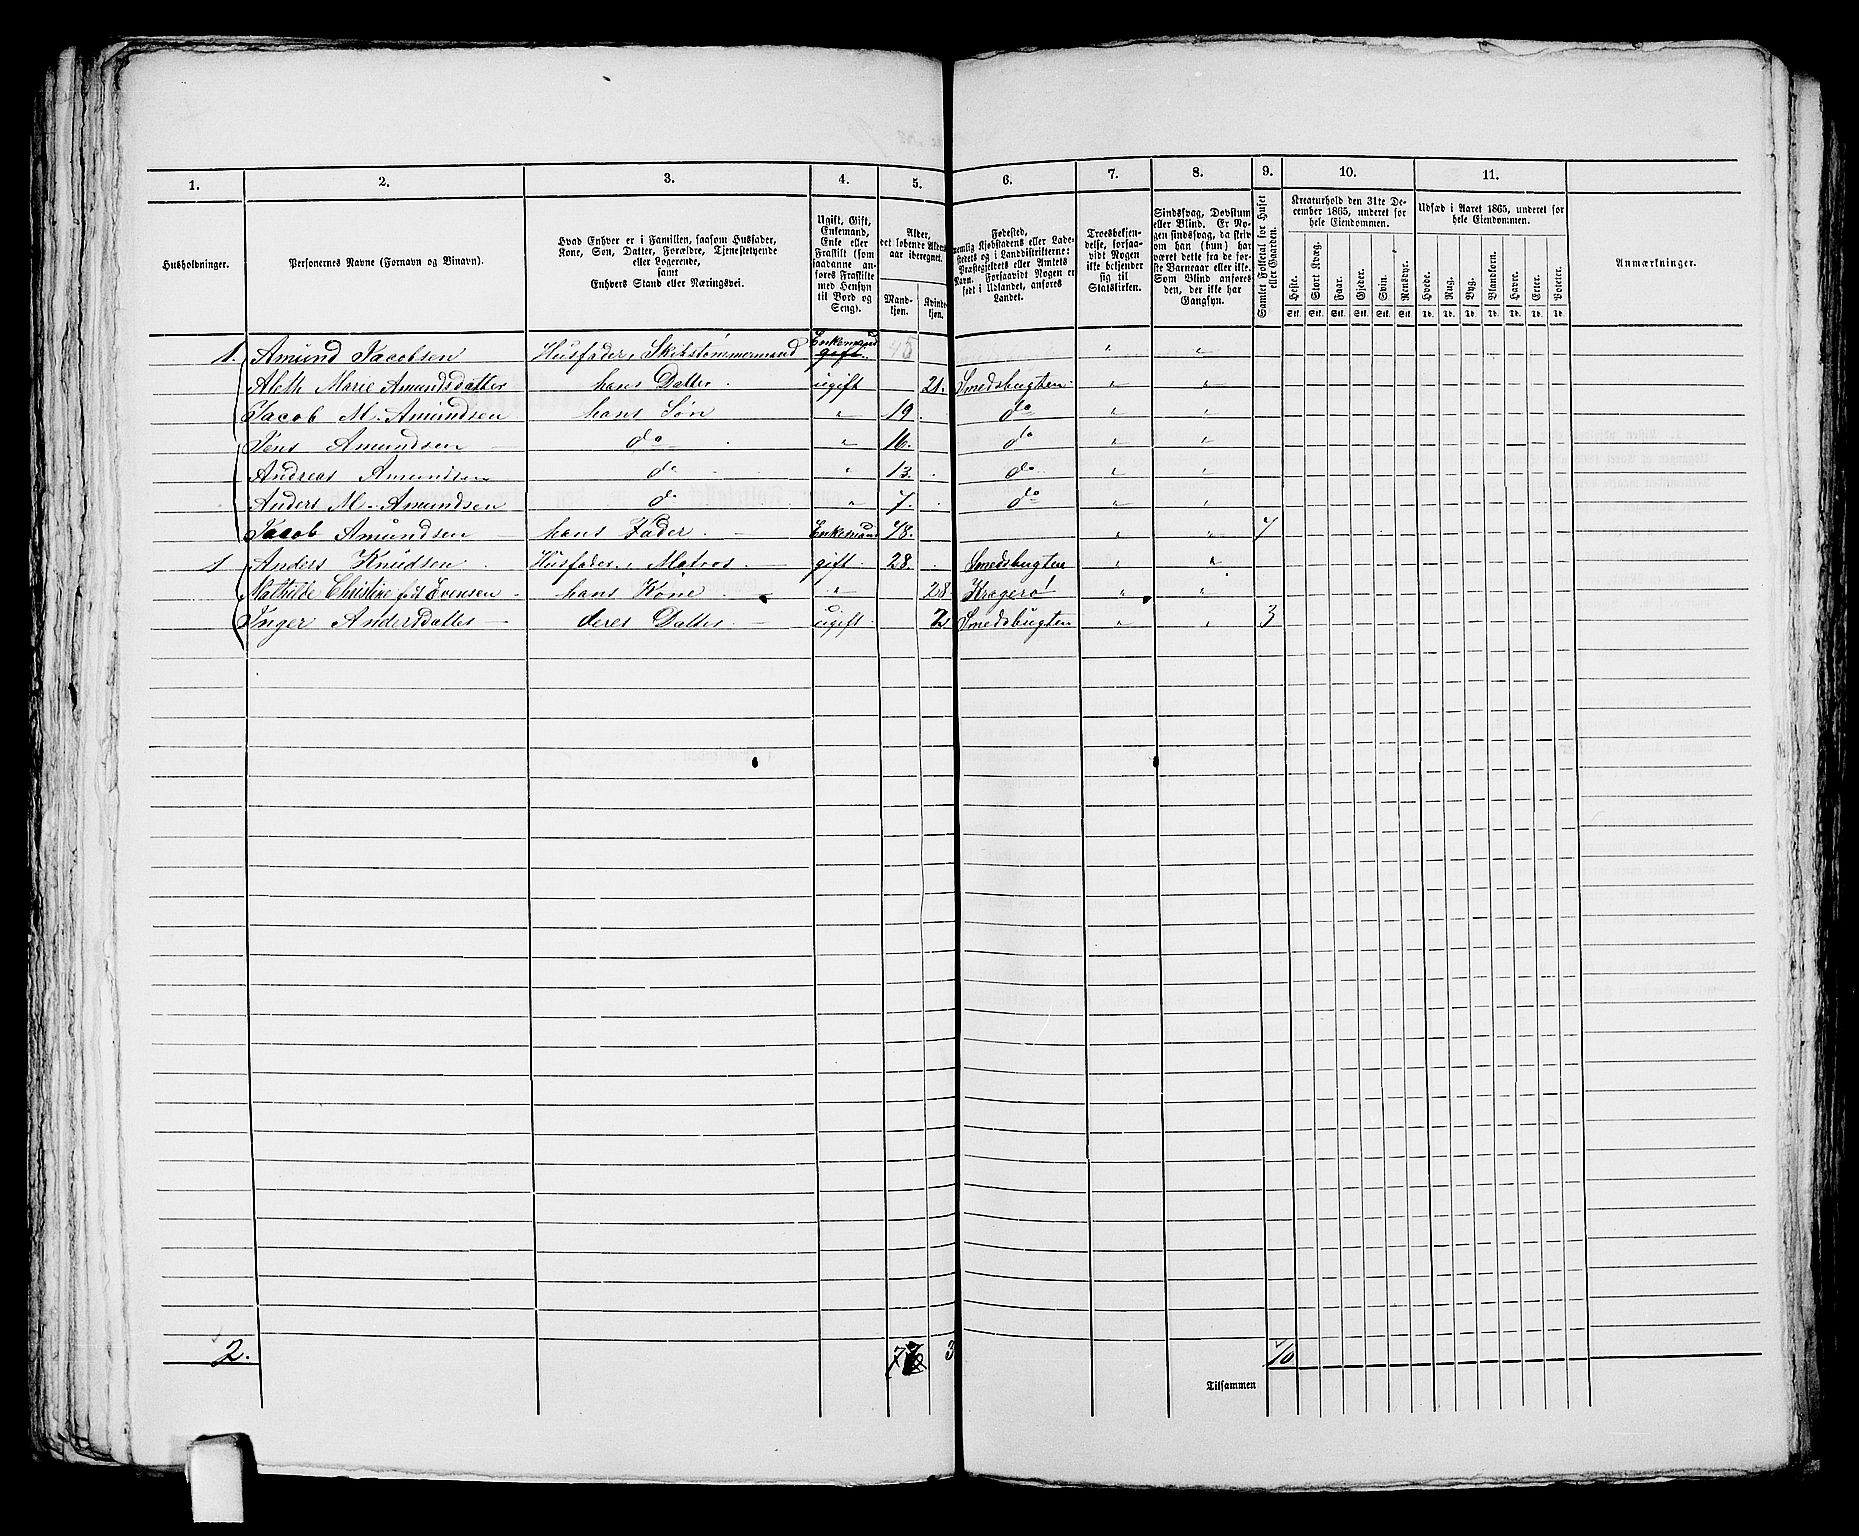 1. 2. 3. 4. 5. 6. 7. 8. 9. 10. 11.
Husholdninger.
Personernes Navne (Fornavn og Binavn).
Hvad Enhver er i Familien, saasom Husfader,
Kone, Søn, Datter, Forældre, Tjenestetyende
eller Logerende,
samt
Enhvers Stand eller Næringsvei.
Ugift, Gift,
Enkemand,
Enke eller
Fraskilt (som
saadanne an-
føres Fraskilte
med Hensyn
til Bord og
Seng).
Alder,
det løbende Alders-
aar iberegnet.
Mand-
kjøn.
Kvinde-
kjøn.
Fødested,
nemlig Kjøbstadens eller Lade-
stedets og i Landdistrikterne:
Præstegjeldets eller Amtets
Navn. Forsaavidt Nogen er
født i Udlandet, anføres
Landet.
Troesbekjen-
delse, forsaa-
vidt Nogen
ikke bekjender
sig til
Statskirken.
Sindssvag, Døvstum
eller Blind. Er No-
gen sindssvag, da skriv
om han (hun) har
været dette fra de før-
ste Barneaar eller ikke.
Som Blind anføres
den, der ikke har
Gangsyn.
Samlet Folketal for Huset
eller Gaarden.
Kreaturhold den 31te De-
cember 1865, underet for
hele Eiendommen.
Heste. Stort Kvæg. Faar. Gjeder. Svin. Rensdyr.
Stk. Stk. Stk. Stk. Stk. Stk.
Udsæd i Aaret 1865, underet for
hele Eiendommen.
Hvede. Rug. Byg. Blandkorn. Havre. Erter. Poteter.
Td. Td. Td. Td. Td. Td. Td.
Anmærkninger.
1. Amund Jacobsen Husfader, Skibstømmermand Enkemand gift. 45 " "
Aleth Marie Amundsdatter hans Datter ugift 21. Smedsbugten " "
Jacob M. Amundsen hans Søn " 19. do " "
Jens Amundsen do " 16. do " "
Andreas Amundsen do " 13. do " "
Anders M. Amundsen do " 7. do " "
Jacob Amundsen hans Fader Enkemand 78. " " 7
1 Anders Knudsen Husfader, Matros gift 28. Smedsbugten " "
Mathilde Christine født Evensen hans Kone " 28 Kragerø " "
Inger Andersdatter deres Datter ugift 2 Smedsbugten " " 3
2. 7 3 10
Tilsammen